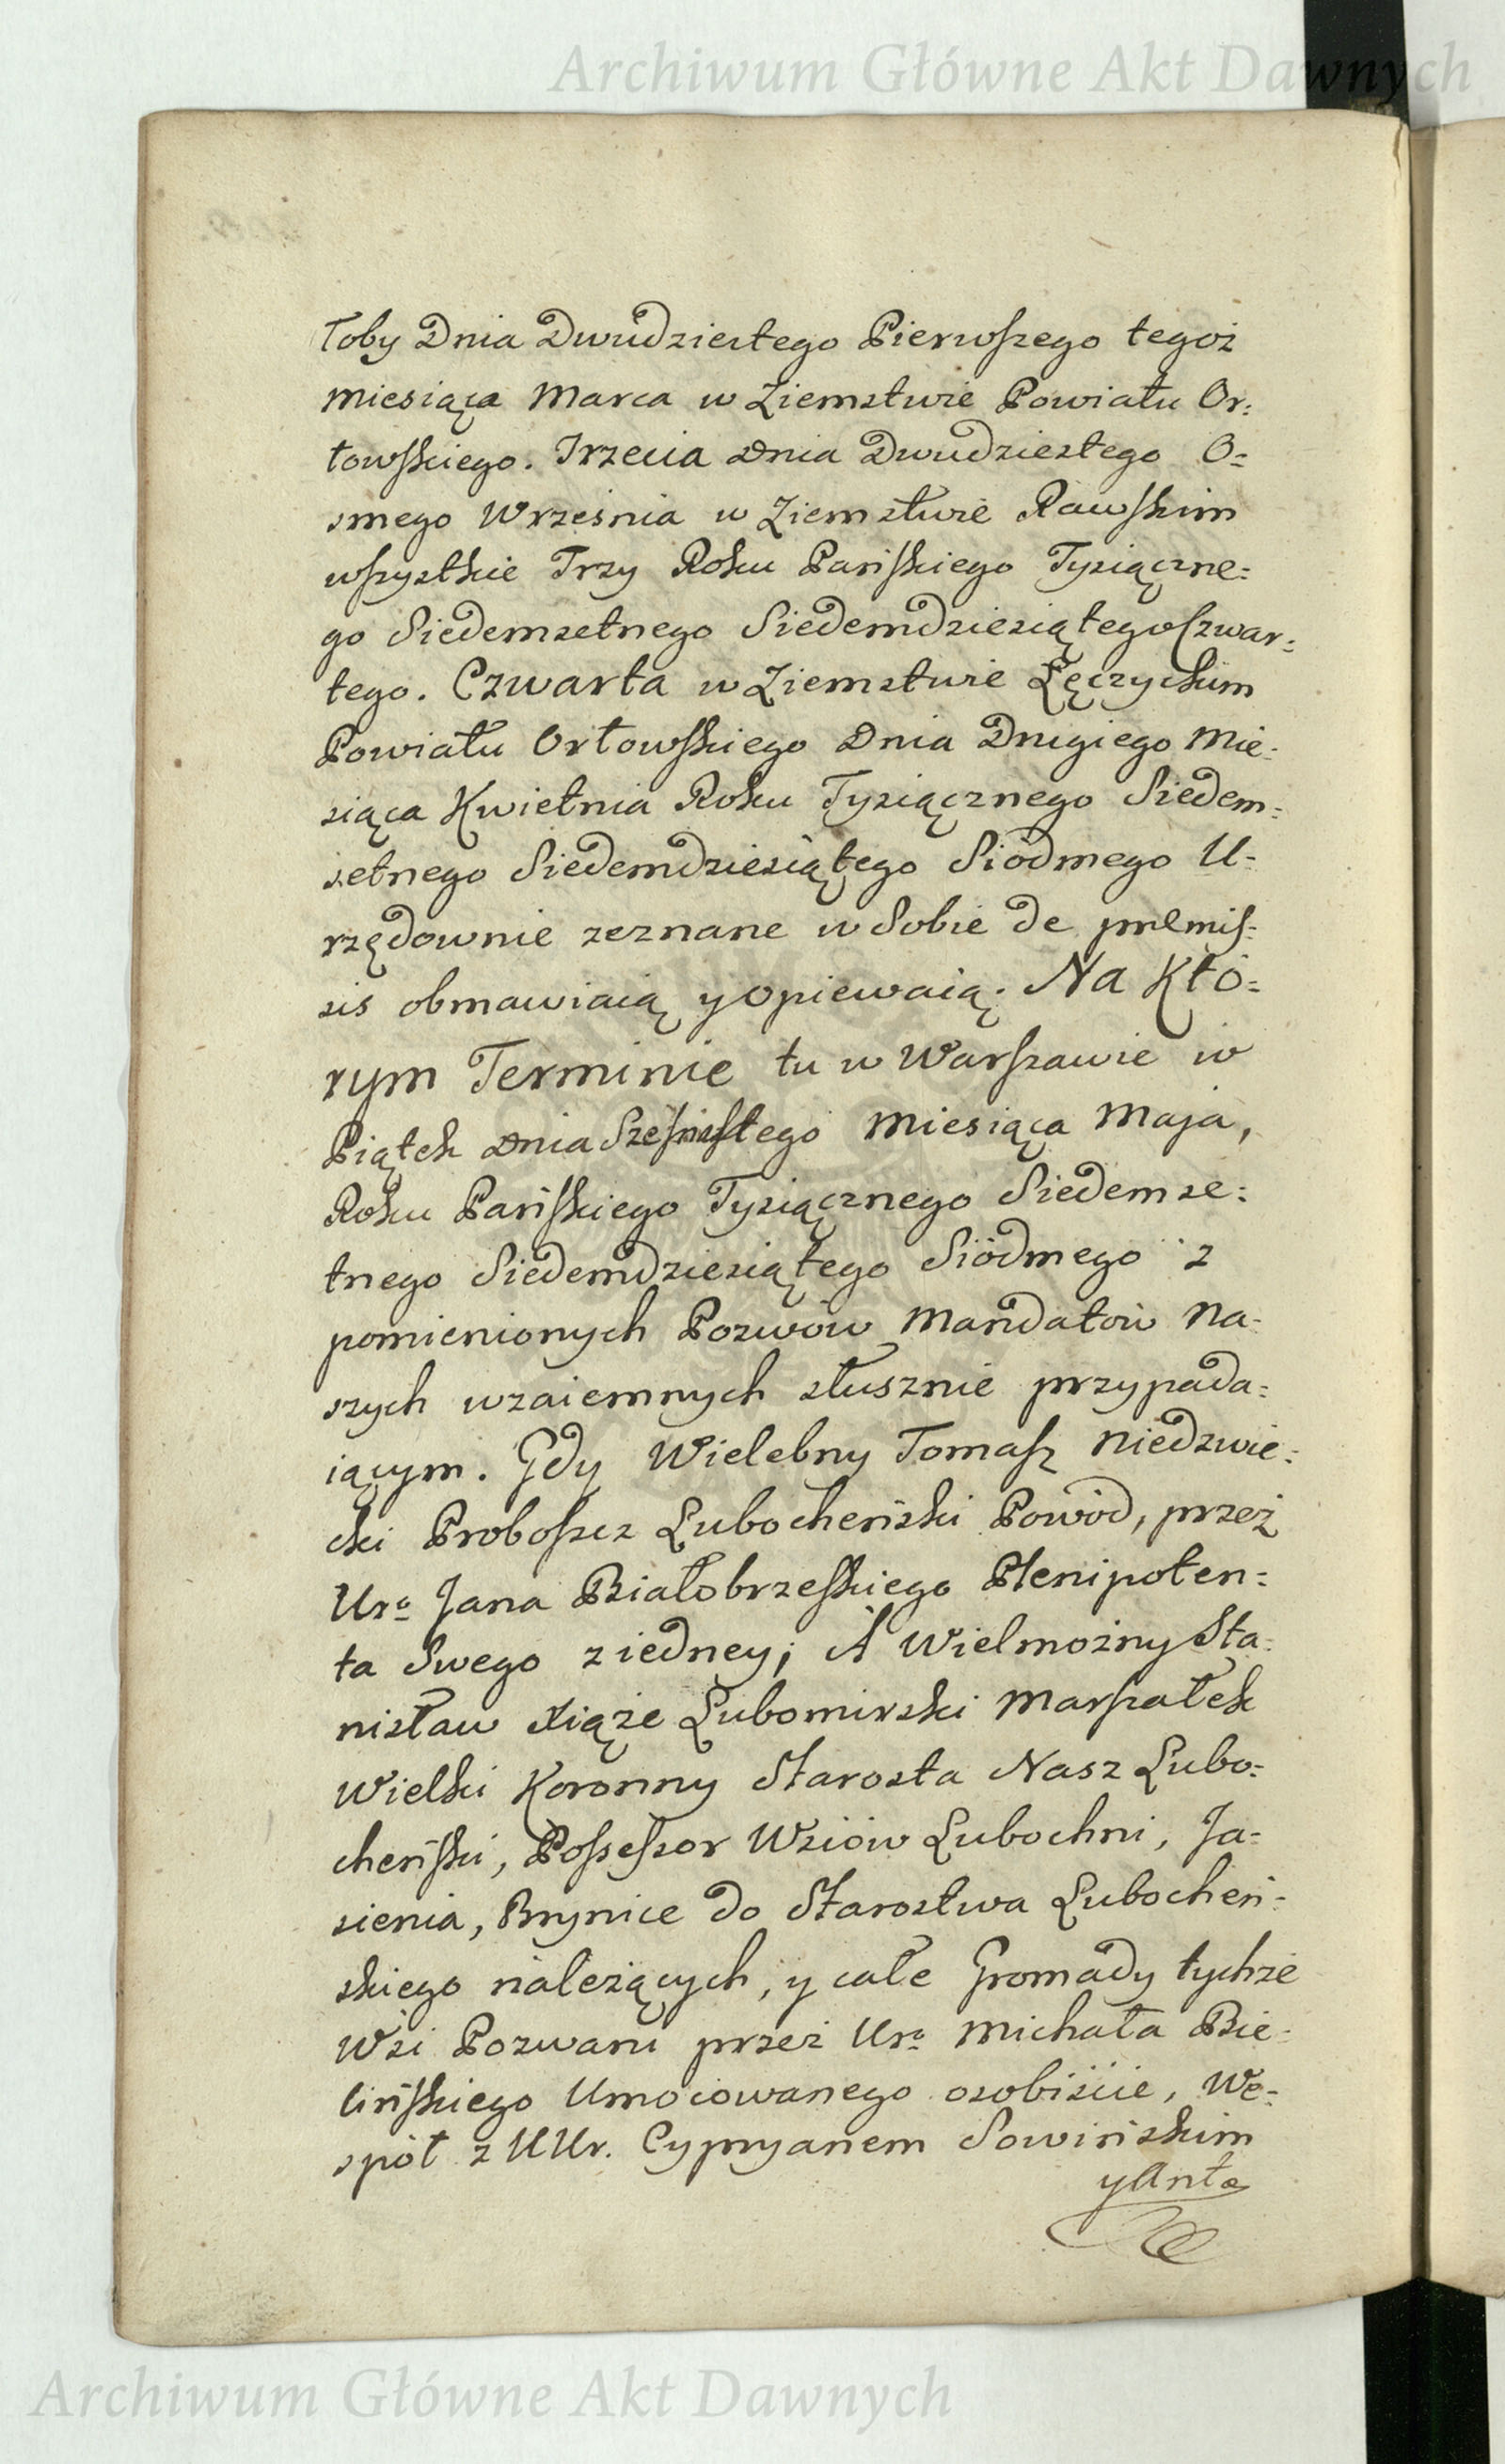 Archiwum Główne Akt Dawnych
Toby Dnia Dwudziestego Pierwszego tegoż
Miesiąca Marca w Ziemstwie Powiatu Or:
łowskiego. Trzecia Dnia Dwudziestego O=
smego Września w Ziemstwie Rawskim
wszystkie Trzy Roku Pańskiego Tysiączne=
go Siedemsetnego Siedemdziesiątego Czwar:
tego. Czwarta w Ziemstwie Łęczyckim
Powiatu Orłowskiego Dnia Drugiego Mie:
siąca Kwietnia Roku Tysiącznego Siedem:
setnego Siedemdziesiątego Siódmego U=
rzędownie zeznane w Sobie de premis=
sis obmawiaią y opiewaią. Na Któ=
rym Terminie tu w Warszawie w
Piątek Dnia Miesiąca Maja,
Roku Pańskiego Tysiącznego Siedemse:
tnego Siedemdziesiątego Siódmego z
pomienionych Pozwów Mandatów Na:
szych wzaiemnych słusznie przypada=
iącym. Gdy Wielebny Tomasz Niedzwie:
cki Proboszcz Lubocheński Powód, przez
Uro Jana Białobrzeskiego Plenipoten:
ta Swego z iedney; A Wielmożny Sta:
nisław Xiąże Lubomirski Marszałek
Wielki Koronny Starosta Nasz Lubo:
cheński, Possessor Wsiów Lubochni, Ja=
sienia, Brynice do Starostwa Lubocheń:
skiego należących, y całe Gromady tychże
Wsi Pozwani przez Uro Michała Bie:
lińskiego Umocowanego osobiście, We:
spół z UUr. Cypryanem Sowińskim
y Anto
Archiwum Główne Akt Dawnych